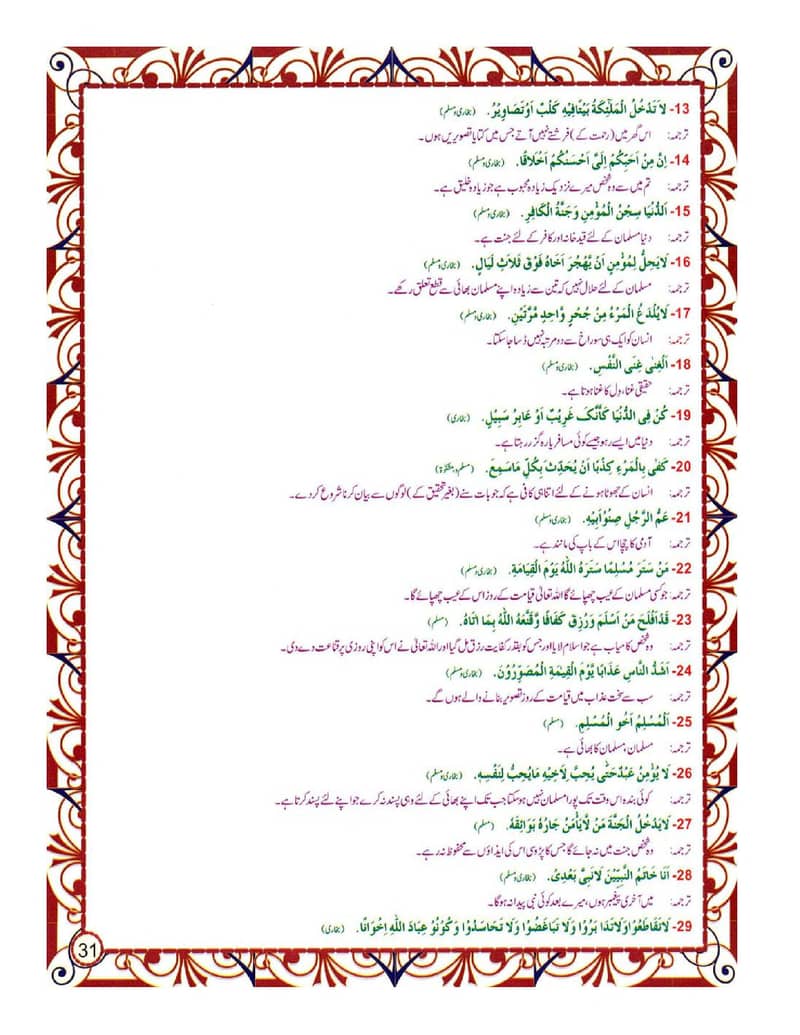 13- لَا تَدْخُلُ الْمَلٰٓئِكَةُ بَيْتًا فِيْهِ كَلْبٌ اَوْ تَصَاوِيْرُ۔ (بخاری و مسلم)
ترجمہ: اس گھر میں (رحمت کے) فرشتے نہیں آتے جس میں کتا یا تصویریں ہوں۔
14- اِنَّ مِنْ اَحَبِّكُمْ اِلَيَّ اَحْسَنُكُمْ اَخْلَاقًا۔ (بخاری و مسلم)
ترجمہ: تم میں سے وہ شخص میرے نزدیک زیادہ محبوب ہے جو زیادہ خلیق ہے۔
15- اَلدُّنْيَا سِجْنُ الْمُؤْمِنِ وَجَنَّةُ الْكَافِرِ۔ (بخاری و مسلم)
ترجمہ: دنیا مسلمان کے لئے قید خانہ اور کافر کے لئے جنت ہے۔
16- لَا يَحِلُّ لِمُؤْمِنٍ اَنْ يَّهْجُرَ اَخَاهُ فَوْقَ ثَلَاثِ لَيَالٍ۔ (بخاری و مسلم)
ترجمہ: مسلمان کے لئے حلال نہیں کہ تین سے زیادہ اپنے مسلمان بھائی سے قطع تعلق رکھے۔
17- لَا يُلْدَغُ الْمَرْءُ مِنْ جُحْرٍ وَّاحِدٍ مَّرَّتَيْنِ۔ (بخاری و مسلم)
ترجمہ: انسان کو ایک ہی سوراخ سے دو مرتبہ نہیں ڈسا جا سکتا۔
18- اَلْغِنٰى غِنَى النَّفْسِ۔ (بخاری و مسلم)
ترجمہ: حقیقی غنا، دل کا غنا ہوتا ہے۔
19- كُنْ فِى الدُّنْيَا كَأَنَّكَ غَرِيْبٌ اَوْ عَابِرُ سَبِيْلٍ۔ (بخاری)
ترجمہ: دنیا میں ایسے رہو جیسے کوئی مسافر یا رہ گزر رہتا ہے۔
20- كَفٰى بِالْمَرْءِ كَذِبًا اَنْ يُّحَدِّثَ بِكُلِّ مَا سَمِعَ۔ (مسلم و مشکوٰۃ)
ترجمہ: انسان کے جھوٹا ہونے کے لئے اتنا ہی کافی ہے کہ جو بات سنے (بغیر تحقیق کے) لوگوں سے بیان کرنا شروع کر دے۔
21- عَمُّ الرَّجُلِ صِنْوُ اَبِيْهِ۔ (بخاری و مسلم)
ترجمہ: آدمی کا چچا اس کے باپ کی مانند ہے۔
22- مَنْ سَتَرَ مُسْلِمًا سَتَرَهُ اللّٰهُ يَوْمَ الْقِيَامَةِ۔ (بخاری و مسلم)
ترجمہ: جو کسی مسلمان کے عیب چھپائے گا اللہ تعالیٰ قیامت کے روز اس کے عیب چھپائے گا۔
23- قَدْ اَفْلَحَ مَنْ اَسْلَمَ وَرُزِقَ كَفَافًا وَّقَنَّعَهُ اللّٰهُ بِمَا اٰتَاهُ۔ (مسلم)
ترجمہ: وہ شخص کامیاب ہے جو اسلام لایا اور جس کو بقدر کفایت رزق مل گیا اور اللہ تعالیٰ نے اس کو اپنی روزی پر قناعت دے دی۔
24- اَشَدُّ النَّاسِ عَذَابًا يَّوْمَ الْقِيٰمَةِ الْمُصَوِّرُوْنَ۔ (بخاری و مسلم)
ترجمہ: سب سے سخت عذاب میں قیامت کے روز تصویر بنانے والے ہوں گے۔
25- اَلْمُسْلِمُ اَخُو الْمُسْلِمِ۔ (مسلم)
ترجمہ: مسلمان، مسلمان کا بھائی ہے۔
26- لَا يُؤْمِنُ عَبْدٌ حَتّٰى يُحِبَّ لِاَخِيْهِ مَا يُحِبُّ لِنَفْسِهِ۔ (بخاری و مسلم)
ترجمہ: کوئی بندہ اس وقت تک پورا مسلمان نہیں ہو سکتا جب تک اپنے بھائی کے لئے وہی پسند نہ کرے جو اپنے لئے پسند کرتا ہے۔
27- لَا يَدْخُلُ الْجَنَّةَ مَنْ لَّا يَأْمَنُ جَارُهُ بَوَائِقَهُ۔ (مسلم)
ترجمہ: وہ شخص جنت میں نہ جائے گا جس کا پڑوسی اس کی ایذاؤں سے محفوظ نہ رہے۔
28- اَنَا خَاتَمُ النَّبِيِّيْنَ لَا نَبِىَّ بَعْدِىْ۔ (بخاری و مسلم)
ترجمہ: میں آخری پیغمبر ہوں، میرے بعد کوئی نبی پیدا نہ ہوگا۔
29- لَا تَقَاطَعُوْا وَلَا تَدَابَرُوْا وَلَا تَبَاغَضُوْا وَلَا تَحَاسَدُوْا وَكُوْنُوْ عِبَادَ اللّٰهِ اِخْوَانًا۔ (بخاری)
31